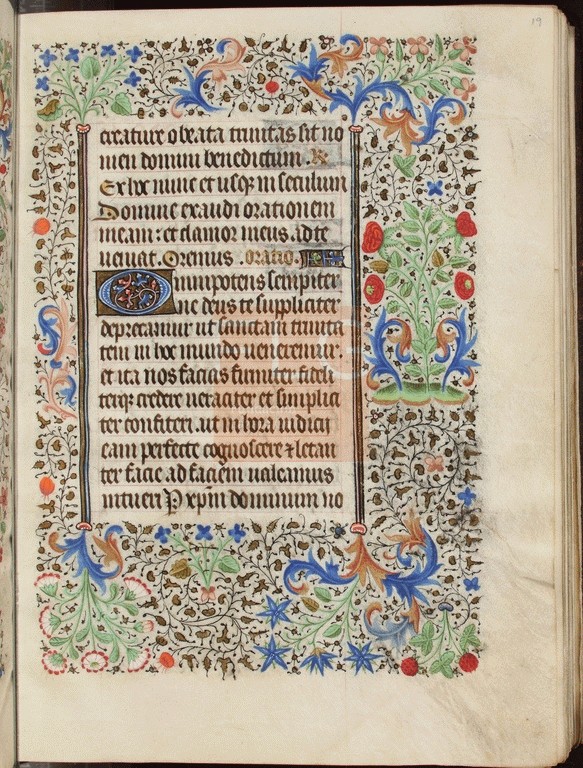 19
creature o beata trinitas sit no
men domini benedictum . R
Ex hoc nunc et usq; in seculum
Domine exaudi orationem
meam: et clamor meus ad te
veniat. Oremus . oratio.
Omnipotens sempiter
ne deus te suppliciter
deprecamur ut sanctam trinita
tem in hoc mundo veneremur:
et ita nos facias firmiter fideli
terq; credere veraciter et simplici
ter confiteri .ut in hora iudicii
eam perfecte cognoscere ⁊ letan
ter facie ad faciem valeamus
intueri P xp̄m dominum no